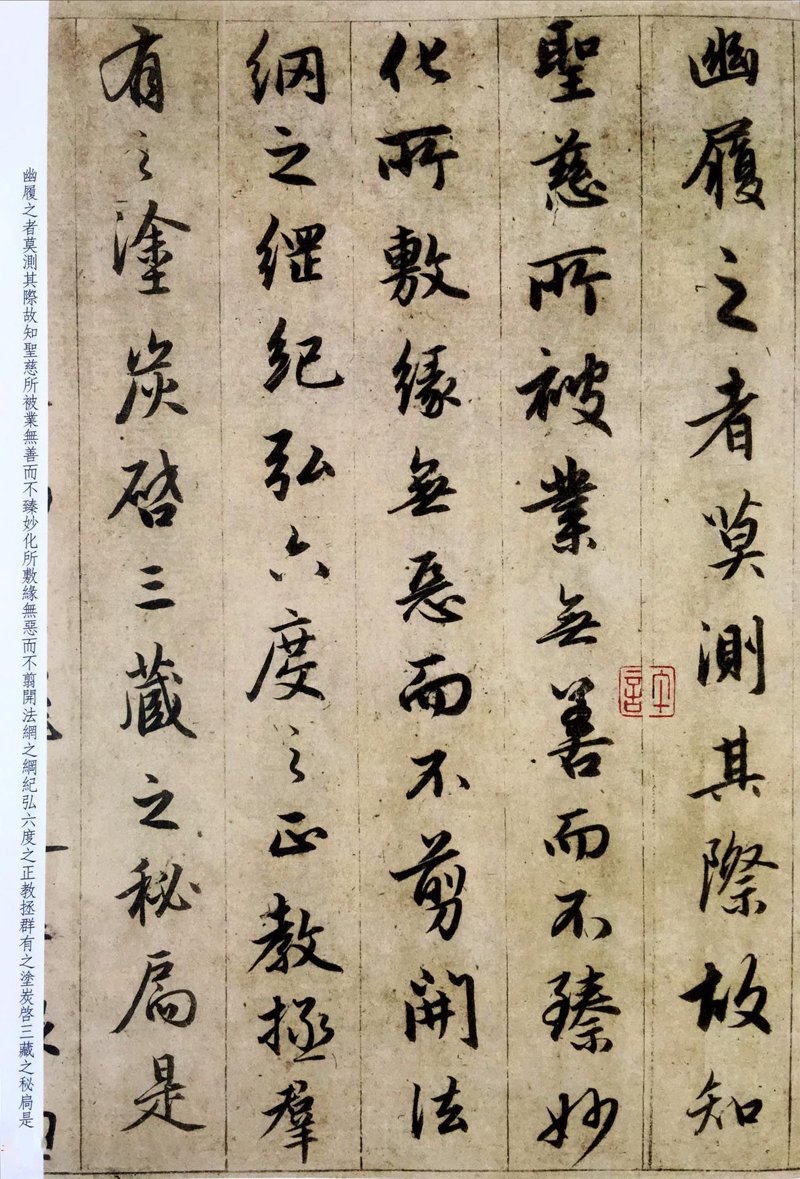 幽履之者莫測其際故知
聖慈所被業無善而不臻妙
化所敷緣無惡而不翦開法
網之綱紀弘六度之正教拯群
有之塗炭啓三藏之秘扃是
幽履之者莫測其際故知聖慈所被業無善而不臻妙化所敷緣無惡而不翦開法網之綱紀弘六度之正教拯群有之塗炭啓三藏之秘扃是